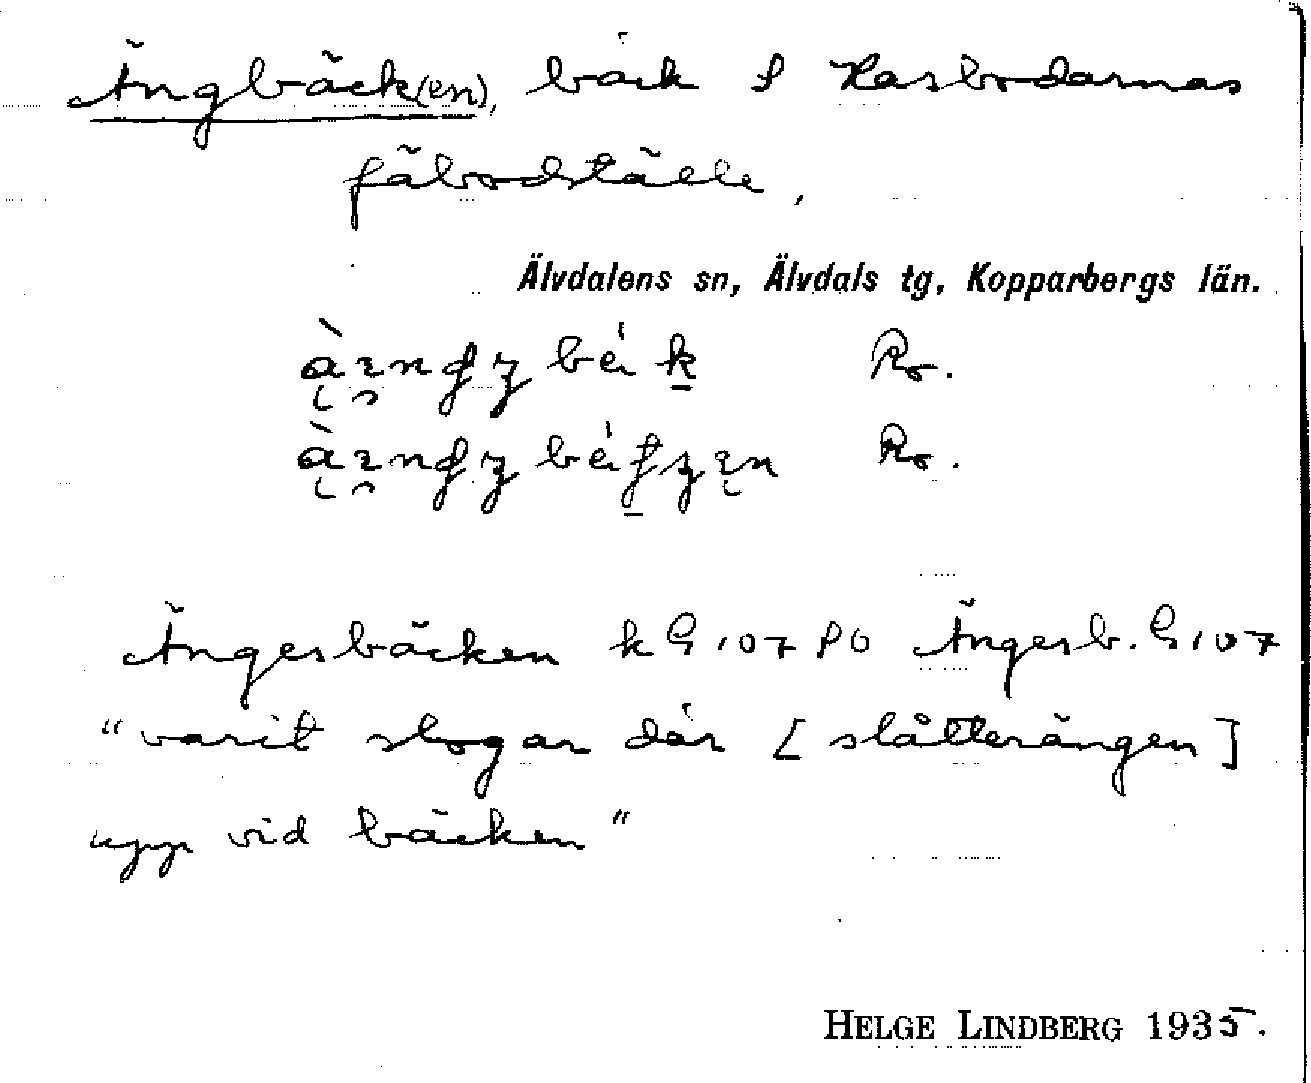 Ängbäck(en), bäck S Hasbodarnas
fäbodställe,
Älvdalens sn, Älvdals tg, Kopparbergs län.
Ro.
Ro.
Ängesbäcken k G 107 PO Ängesb. G 107
"varit slogar där [slåtterängen]
upp vid bäcken"
HELGE LINDBERG 1935.